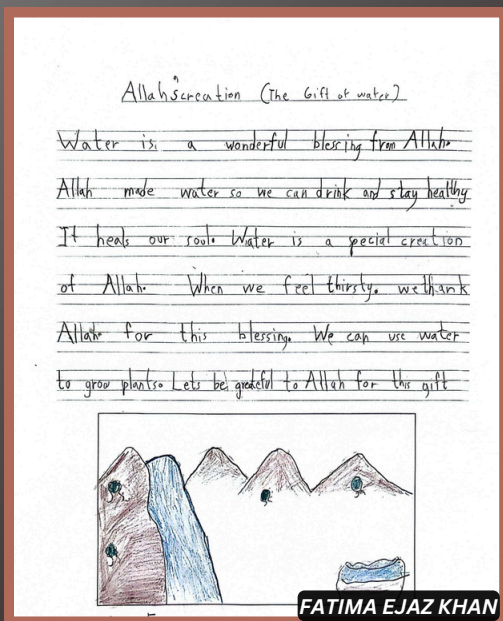 Allah's creation (The Gift of water)
Water is a wonderful blessing from Allah.
Allah made water so we can drink and stay healthy
It heals our soul. Water is a special creation
of Allah. When we feel thirsty. we thank
Allah for this blessing. We can use water
to grow plants. Lets be grateful to Allah for this gift
FATIMA EJAZ KHAN